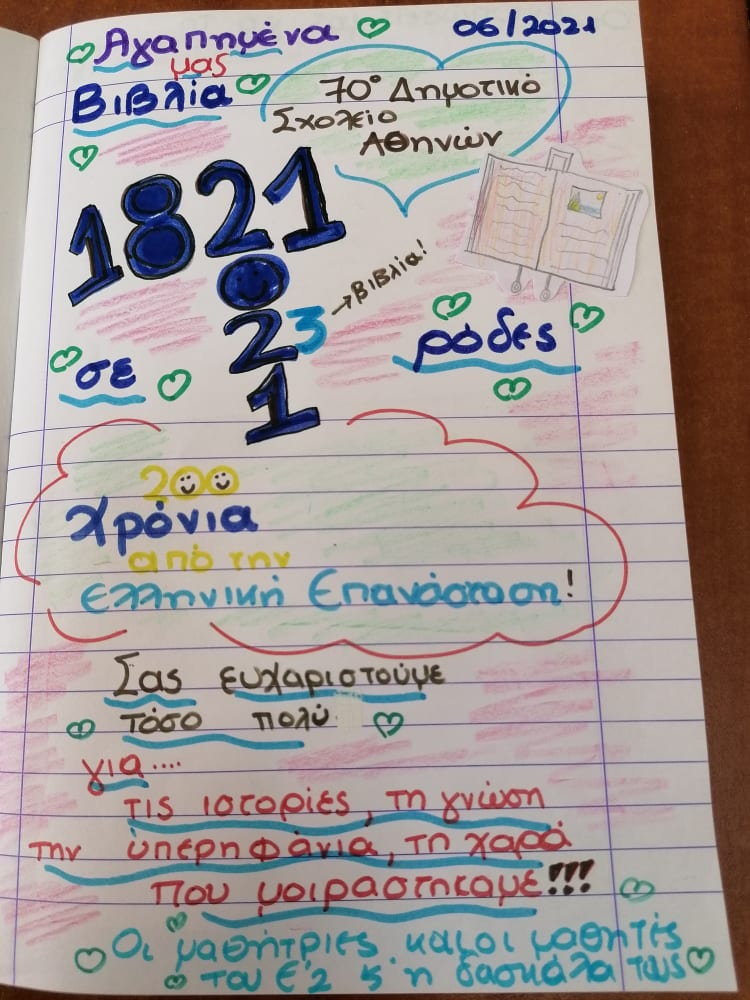 Αγαπημένα
06/2021
μας
Βιβλία
70° Δημοτικό
Σχολείο
Αθηνών
1821
0
23 →Βιβλία!
1
σε ρόδες
200
χρόνια
από την
Ελληνική Επανάσταση!
Σας ευχαριστούμε
τόσο πολύ
για....
τις ιστορίες, τη γνώση
την ὑπερηφάνια, τη χαρά
που μοιραστήκαμε!!!
Οι μαθήτριες και οι μαθητές
του Ε'2 & η δασκάλα τους